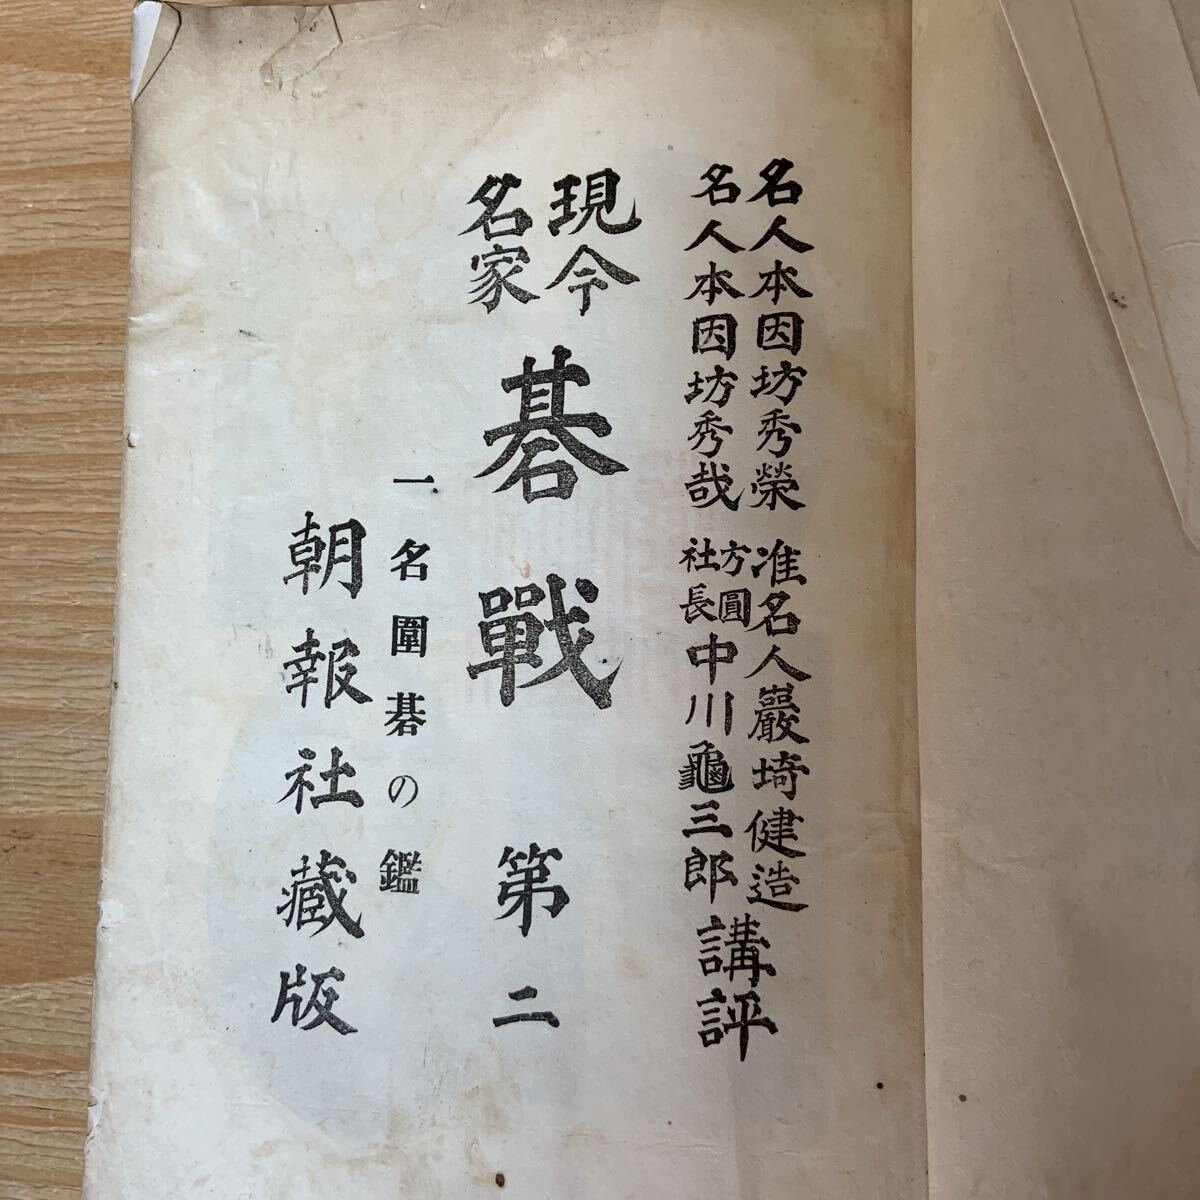 名人本因坊秀榮 准名人巖埼健造
名人本因坊秀哉 方圓社長 中川龜三郎
講評
現今名家
碁戰 第二
一名圍碁の鑑
朝報社藏版